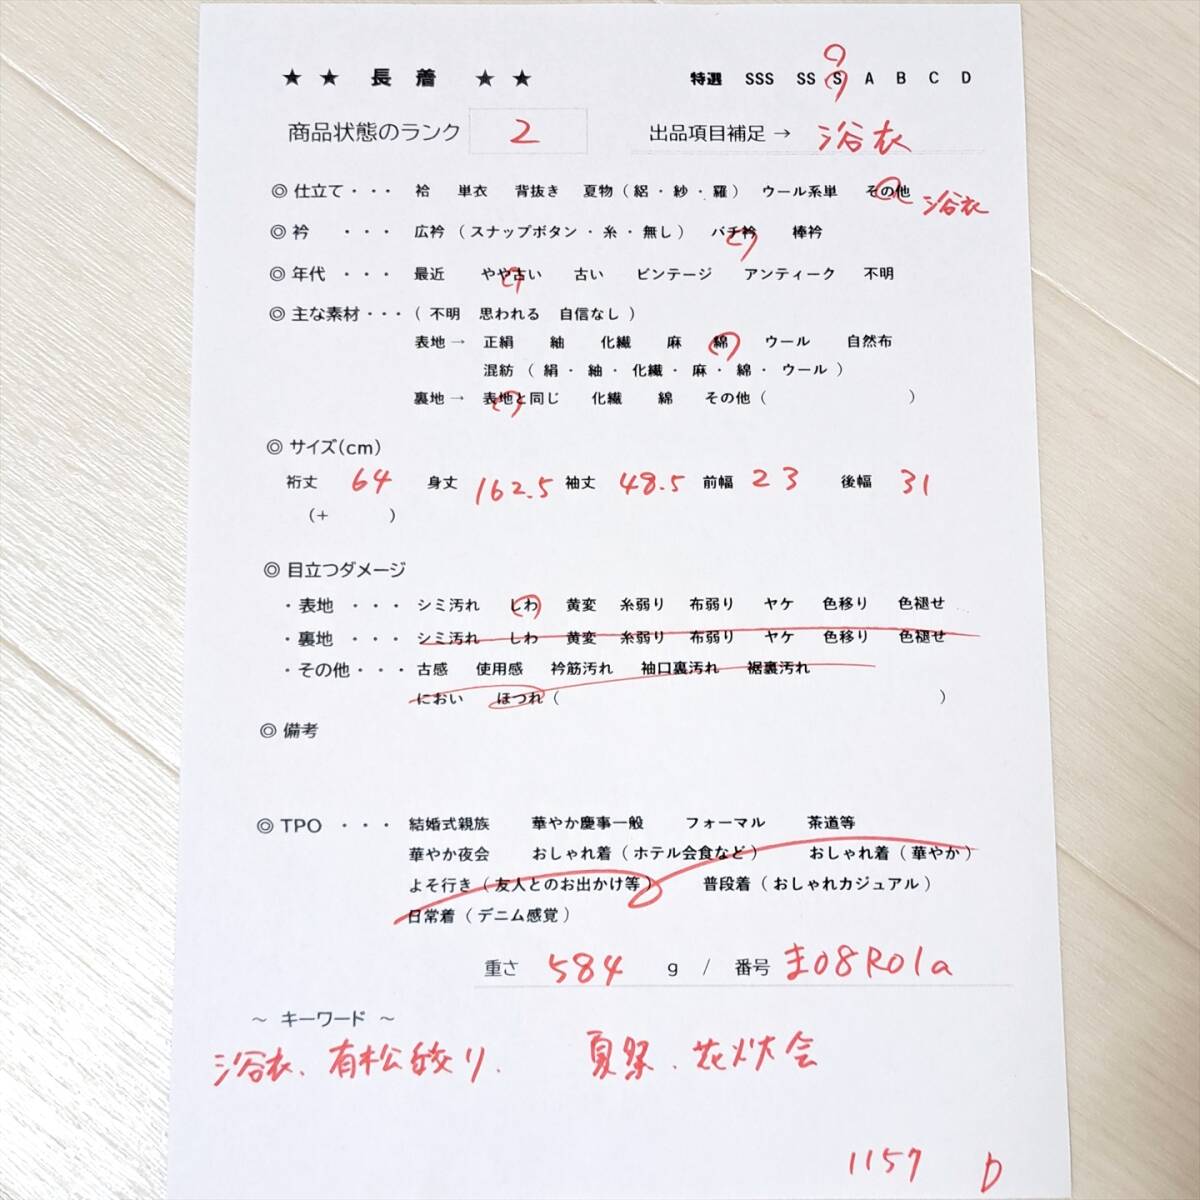 ★ ★ 長 着 ★ ★ 特選 SSS SS S A B C D
商品状態のランク 2 出品項目補足 → 浴衣
◎ 仕立て ・・・ 袷 単衣 背抜き 夏物 ( 絽 ・ 紗 ・ 羅 ) ウール系単 その他 浴衣
◎ 衿 ・・・ 広衿 ( スナップボタン ・ 糸 ・ 無し ) バチ衿 棒衿
◎ 年代 ・・・ 最近 やや古い 古い ビンテージ アンティーク 不明
◎ 主な素材 ・・・ ( 不明 思われる 自信なし )
表地 → 正絹 紬 化繊 麻 綿 ウール 自然布
混紡 ( 絹 ・ 紬 ・ 化繊 ・ 麻 ・ 綿 ・ ウール )
裏地 → 表地と同じ 化繊 綿 その他 ( )
◎ サイズ(cm)
裄丈 64 身丈 162.5 袖丈 48.5 前幅 23 後幅 31
(+ )
◎ 目立つダメージ
・表地 ・・・ シミ汚れ しわ 黄変 糸弱り 布弱り ヤケ 色移り 色褪せ
・裏地 ・・・ シミ汚れ しわ 黄変 糸弱り 布弱り ヤケ 色移り 色褪せ
・その他 ・・・ 古感 使用感 衿筋汚れ 袖口裏汚れ 裾裏汚れ
におい ほつれ ( )
◎ 備考
◎ TPO ・・・ 結婚式親族 華やか慶事一般 フォーマル 茶道等
華やか夜会 おしゃれ着 ( ホテル会食など ) おしゃれ着 ( 華やか )
よそ行き ( 友人とのお出かけ等 ) 普段着 ( おしゃれカジュアル )
日常着 ( デニム感覚 )
重さ 584 g / 番号 ま08R01a
~ キーワード ~
浴衣、有松絞り、 夏祭、花火大会
1157 D